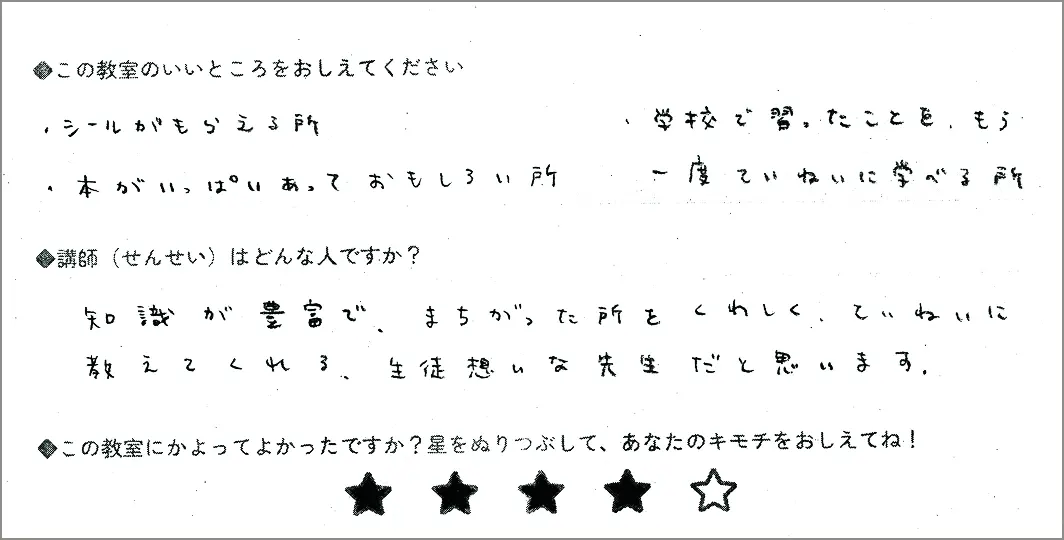 ◆この教室のいいところをおしえてください
・シールがもらえる所
・本がいっぱいあっておもしろい所
・学校で習ったことを、もう
一度ていねいに学べる所
◆講師（せんせい）はどんな人ですか？
知識が豊富で、まちがった所をくわしく、ていねいに
教えてくれる、生徒想いな先生だと思います。
◆この教室にかよってよかったですか？星をぬりつぶして、あなたのキモチをおしえてね！
★★★★☆